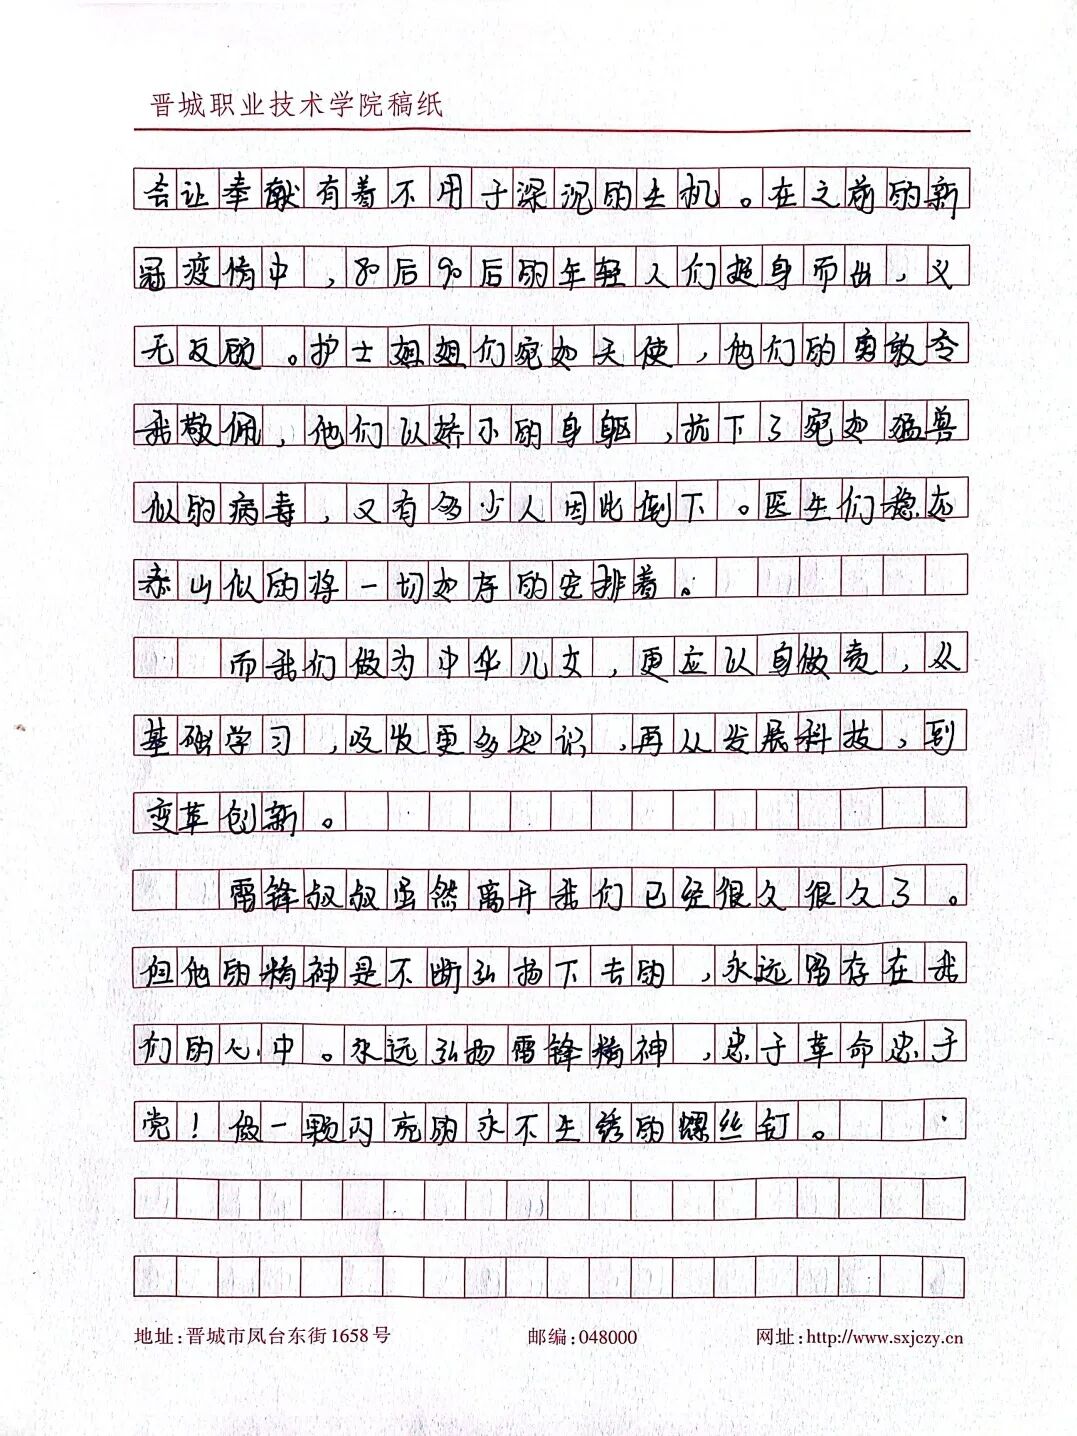 晋城职业技术学院稿纸
会让奉献有着不用于深沉的生机。在之前的新
冠疫情中，80后90后的年轻人们挺身而出，义
无反顾。护士姐姐们宛如天使，他们的勇敢令
我敬佩，他们以娇小的身躯，抗下了宛如猛兽
似的病毒，又有多少人因此倒下。医生们稳如
泰山似的将一切如存的安排着。
而我们做为中华儿女，更应以身做责，从
基础学习，吸发更多知识，再从发展科技，到
变革创新。
雷锋叔叔虽然离开我们已经很久很久了。
但他的精神是不断弘扬下去的，永远留存在我
们的心中。永远弘扬雷锋精神，忠于革命忠于
党！做一颗闪亮的永不生锈的螺丝钉。
地址:晋城市凤台东街1658号 邮编:048000 网址:http://www.sxjczy.cn